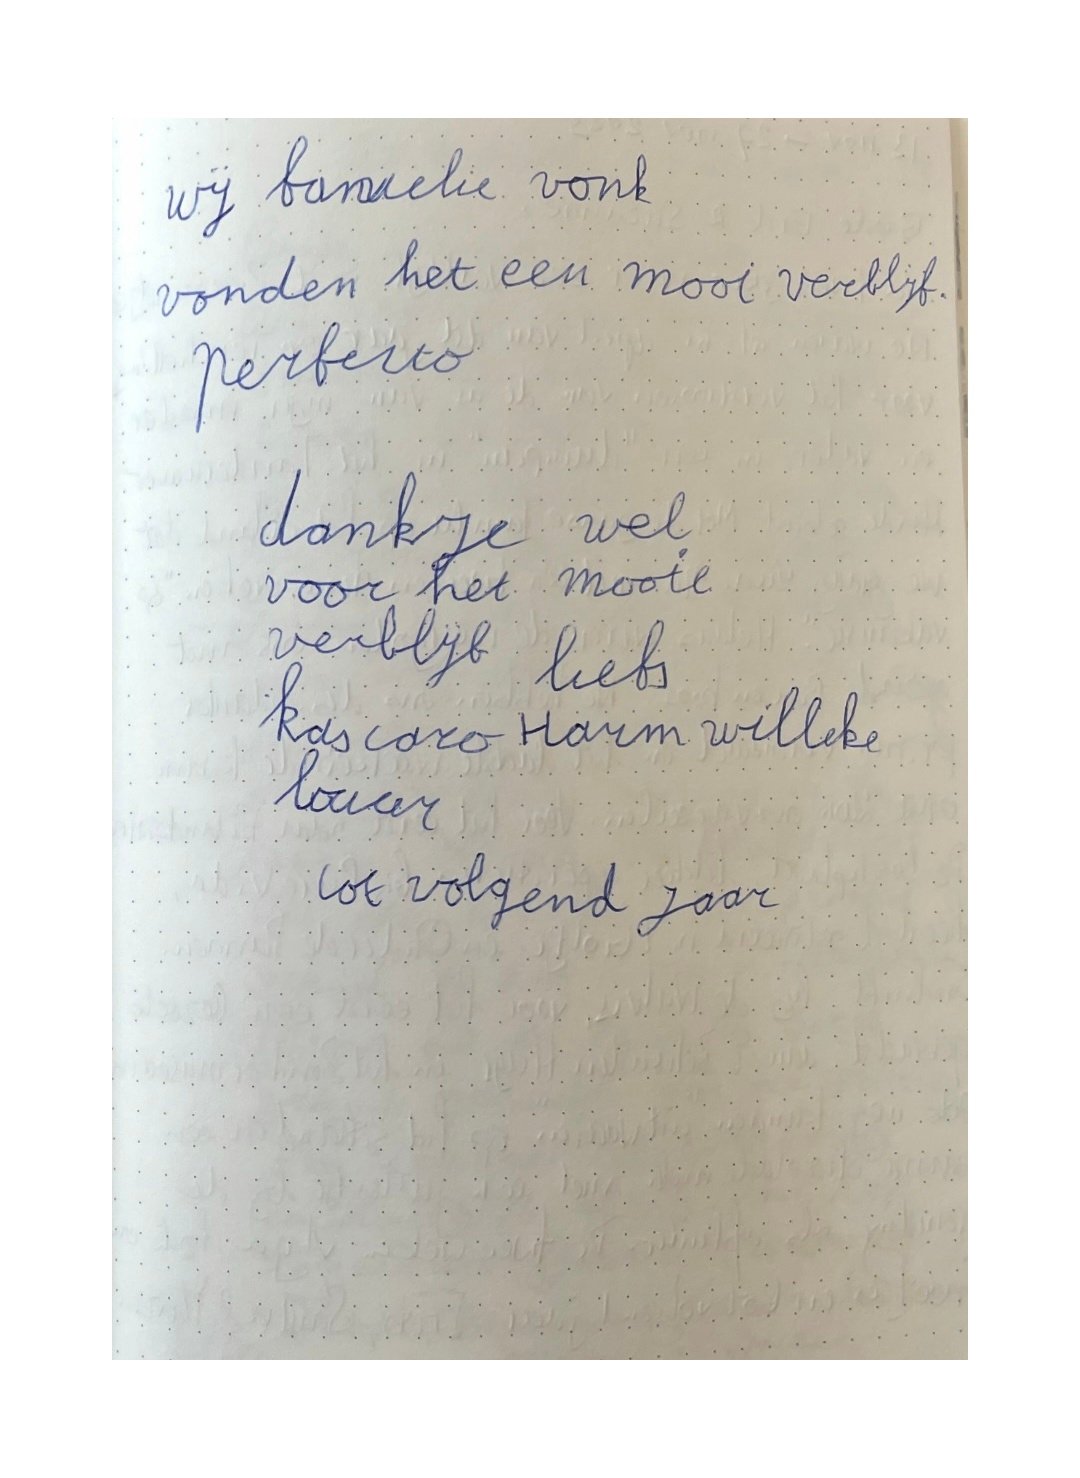 wij famielie vonk
vonden het een mooi verblijf.
perfecto
dankje wel
voor het mooie
verblijf liefs
kas caro Harm willeke
tot volgend jaar